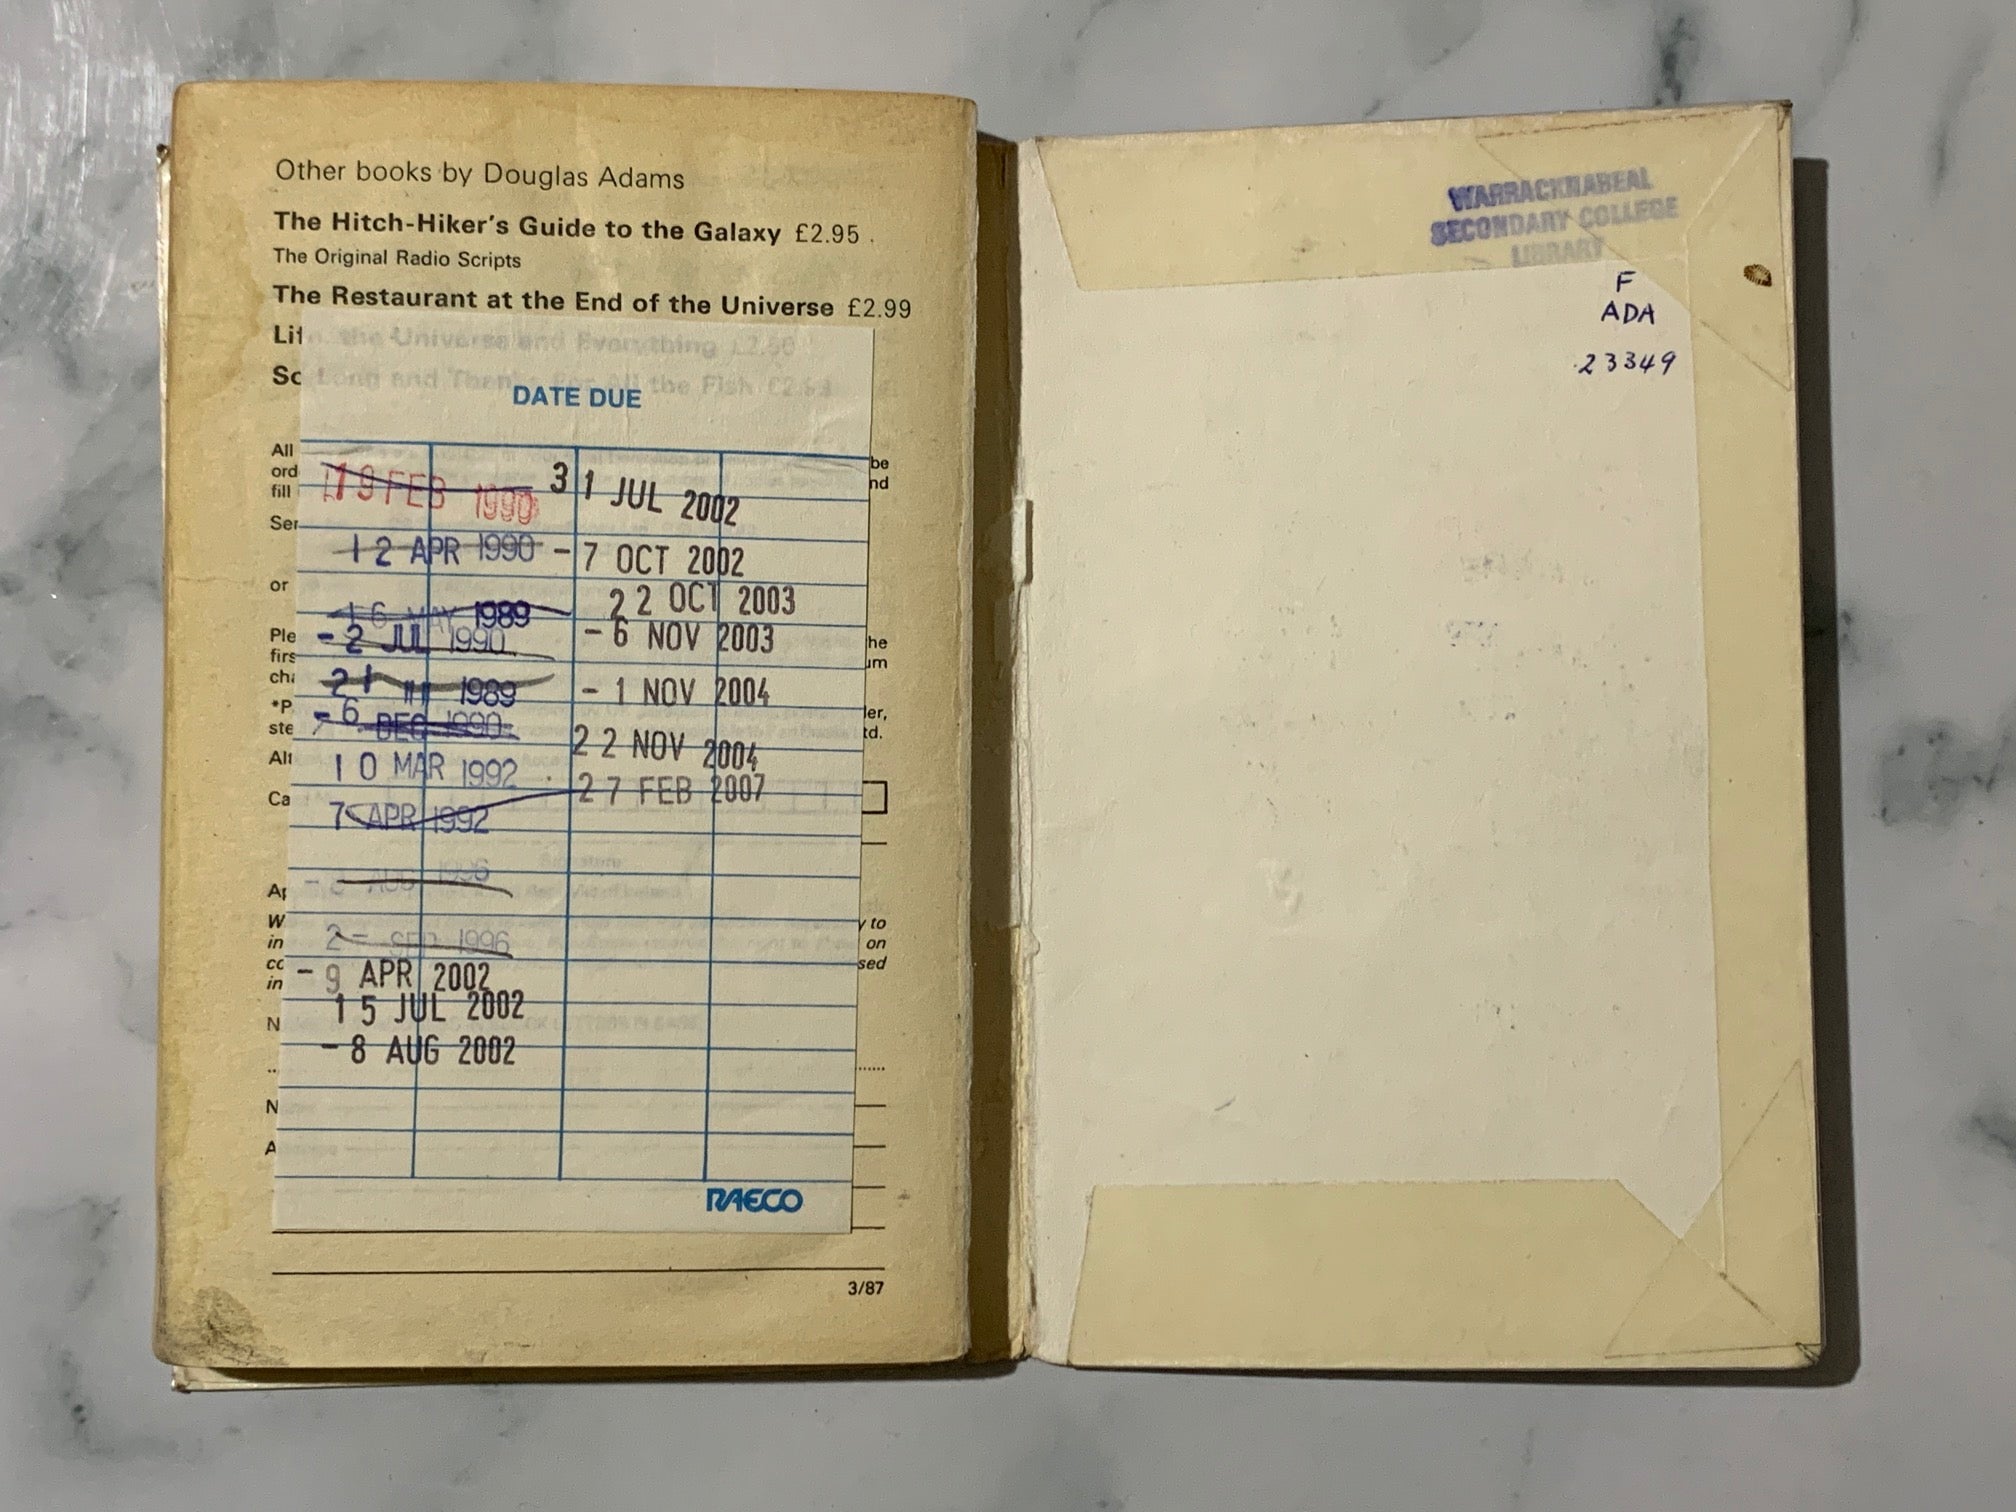 Other books by Douglas Adams
The Hitch-Hiker's Guide to the Galaxy £2.95
The Original Radio Scripts
The Restaurant at the End of the Universe £2.99
Life, the Universe and Everything £2.50
So Long and Thanks For All the Fish
DATE DUE
All
be
ord
nd
fill
Ser
or
Ple
he
firs
um
cha
*P
ler,
ste
td.
Alt
Ca
Ap
W
y to
in
on
cc
sed
in
N
N
A
19 FEB 1990
12 APR 1990
16 MAY 1989
- 2 JUL 1990
21 1989
- 6 DEC 1990
10 MAR 1992
7 APR 1992
AUG 1996
2 - SEP 1996
- 9 APR 2002
15 JUL 2002
- 8 AUG 2002
31 JUL 2002
- 7 OCT 2002
22 OCT 2003
- 6 NOV 2003
- 1 NOV 2004
22 NOV 2004
27 FEB 2007
RAECO
3/87
WARRACKNABEAL
SECONDARY COLLEGE
LIBRARY
F
ADA
23349